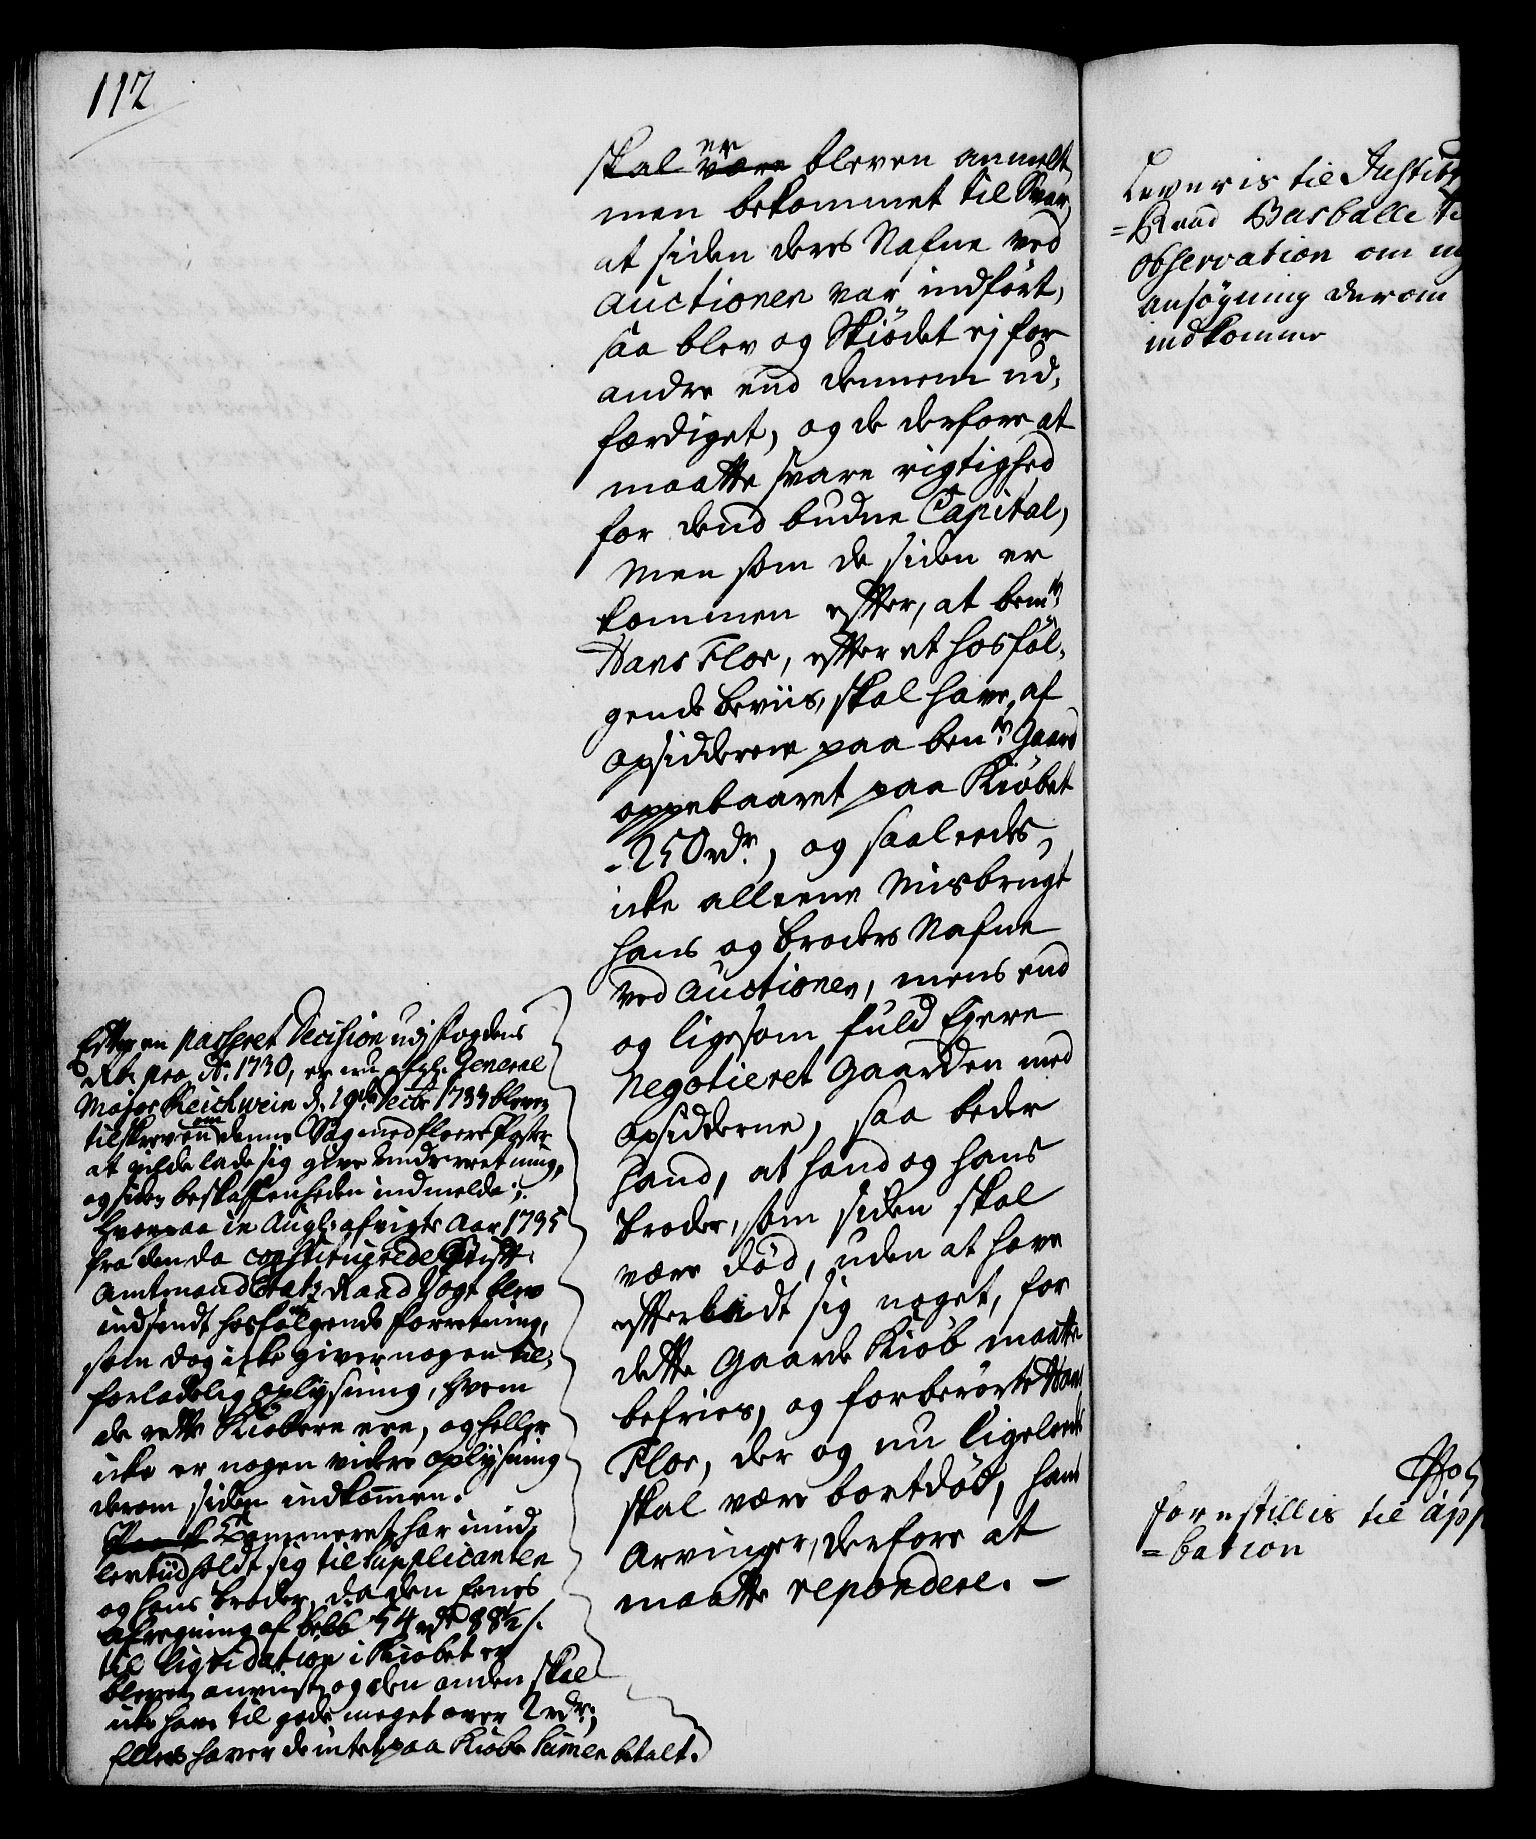 112
skal er være bleven anmeldt,
men bekommet til Svar,
at siden deres Nafne ved
Auctionen var indført,
saa blev og Skiødet ej for
andre end dennem ud,
færdiget, og de derfore at
maatte svare rigtighed
for dend budne Capital,
Men som de siden er
kommen efter, at bemte
Hans Floe, efter et hosføl,
gende beviis, skal have af
opsidderne paa bemte Gaard
oppebaaret paa Kiøbet
250 rdr, og saaleedes,
icke alleene Misbrugt
hans og broders Nafne
ved Auctionen, mens end
og ligesom fuld Ejere
negotieret Gaarden med
opsidderne, saa beder
hand, at hand og hans
broder, som siden skal
være død, uden at have
efterladt sig noget, for
dette Gaards Kiøb maatte
befries, og forberørte Hans
Floe, der og nu ligeleedes
skal være bortdød, hans
Arvinger, derfore at
maatte repondere. —
Efter en passeret Decision udj fogdens
Rb. pro Ao. 1730, er nu afgl. General
Major Reichwein d. 19de Decbr 1733 bleven
tilskreven om denne Sag med fleere Poster
at vilde lade sig give Underretning,
og siden beskaffenheden indmelde;
hvorpaa in Aug. afvigte Aar 1735
fra den da constituerede Stift-
Amtmand Etatz Raad Vogt blev
indsendt hosfølgende forretning,
som dog icke giver nogen til,
forladelig oplysning, hvem
de rette Kiøbere ere, og heller
icke er nogen videre oplysning
derom siden indkommen.
Cammeret har imid,
lertiid holdt sig til Supplicanten
og hans broder, da den Eenes
afregning af 54 rdr 88½ s.
til liqvidation i Kiøbet er
bleven anviist, og den anden skal
icke have til gode meget over 2 rdr,
Ellers haver de intet paa Kiøbe Sumen betalt.
Leveris til Justitz
=Raad Basballe til
observation om ny
ansøgning derom
indkommer
forestillis til app
=bation